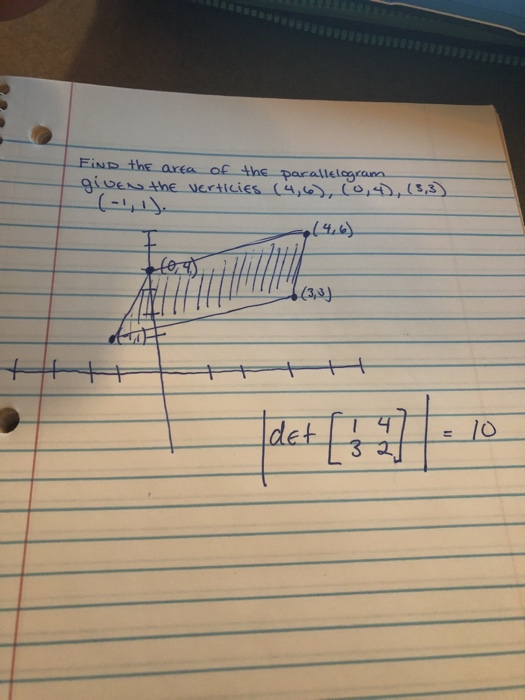 FIND the area of the parallelogram
given the verticies (4,6), (0,4), (3,3)
(-1,1).
(4,6)
(0,4)
(3,3)
(-1,1)
|det [1 4
3 2]| = 10